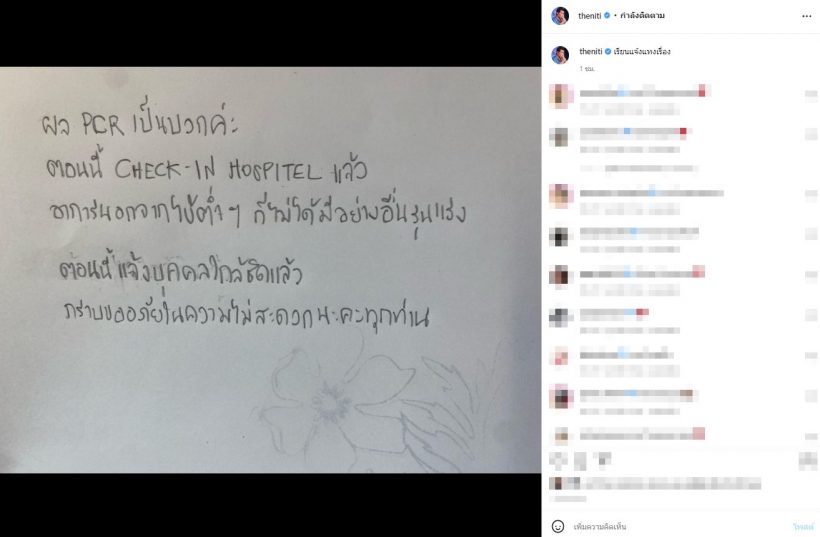 theniti • กำลังติดตาม
theniti เรียนแจ้งแทงเรื่อง
1 ชม.
ผล PCR เป็นบวกค่ะ
ตอนนี้ CHECK-IN HOSPITEL แล้ว
อาการนอกจากไข้ต่ำๆ ก็ไม่ได้มีอย่างอื่นรุนแรง
ตอนนี้แจ้งบุคคลใกล้ชิดแล้ว
กราบขออภัยในความไม่สะดวกนะคะทุกท่าน
เพิ่มความคิดเห็น
โพสต์